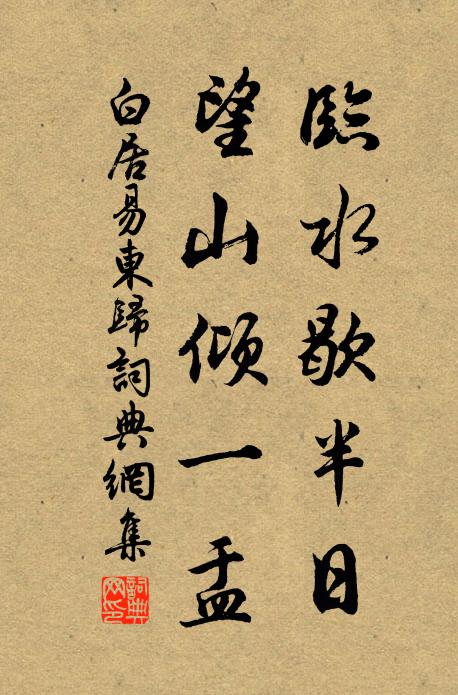 臨水歇半日
望山傾一盂
白居易東歸詞典網集
詞典网印